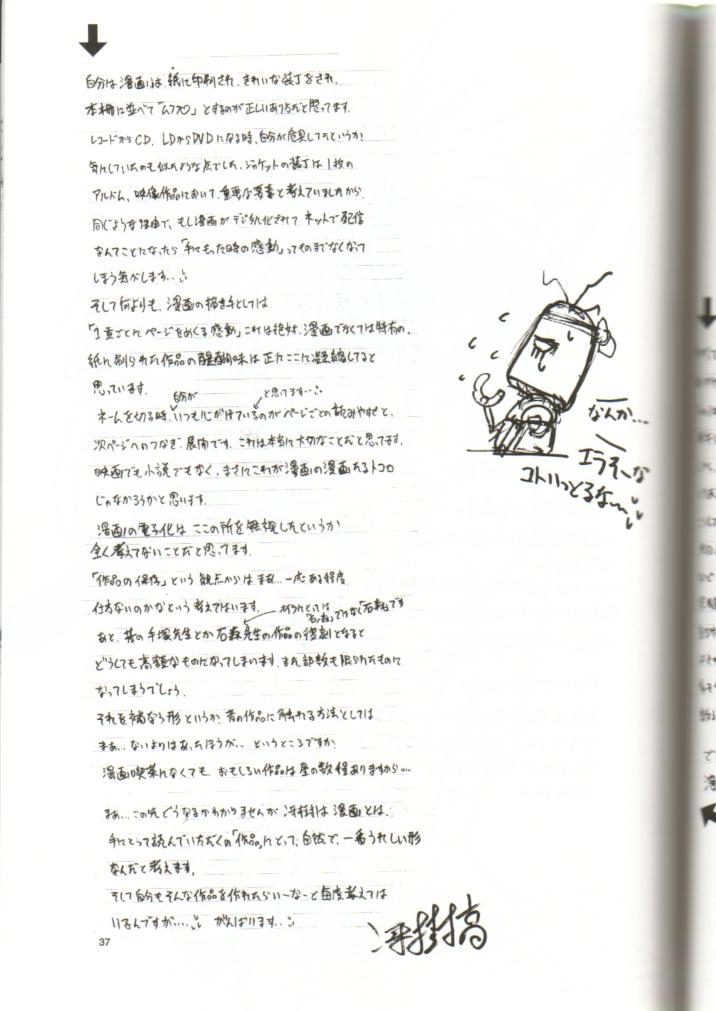 自分は「漫画」は、紙に印刷され、きれいな装丁をされ、
本棚に並べて「ムフフ」とするのが正しいあり方だと思ってます。
レコードからCD、LDからDVDになる時、自分が危惧してたというか
気にしていたのも似たような点でした。ジャケットの装丁は1枚の
アルバム、映像作品において、重要な要素と考えていましたから
同じような理由で、もし漫画がデジタル化されて、ネットで配信
なんてことになったら「手にもった時の感動」ってものまでなくなって
しまう気がします…
そして何よりも、漫画の描き手としては
「1頁ごとにページをめくる感動」これは絶対、漫画でなくては特有の、
紙に刷られた作品の醍醐味は正にここに凝縮してると
思っています。
自分が
と思てます…
ネームを切る時、いつも心がけているのがページごとの読みやすさと、
次ページへのつなぎ・展開です。これは本当に大切なことだと思ってます。
映画でも小説でもなく、まさにこれが漫画の漫画たるトコロ
じゃなかろうかと思います。
漫画の電子化は ここの所を無視したというか
全く考えてないことだと思ってます。
「作品の保存」という観点からは まぁ…一応ある程度
仕方ないのかなという考えではいます。
あと、昔の手塚先生とか石森先生の作品の復刻となると
どうしても高額なものになってしまいます。また部数も限られたものに
なってしまうでしょう。
それを補なう形というか、昔の作品に触れる方法としては
まぁ…ないよりはあったほうが… というところですか?
漫画喫茶になくても、おもしろい作品は星の数程ありますから…
まぁ…この先どうなるかわかりませんが、冴樹は「漫画」とは、
手にとって読んでいただくの「作品」にとって、自然で、一番うれしい形
なんだと考えます。
そして自分もそんな作品を作れたらいーなーと毎度考えては
いるんですが…… がんばります…
冴樹高
なんか…
エラそーな
コトいっとるな〜
37